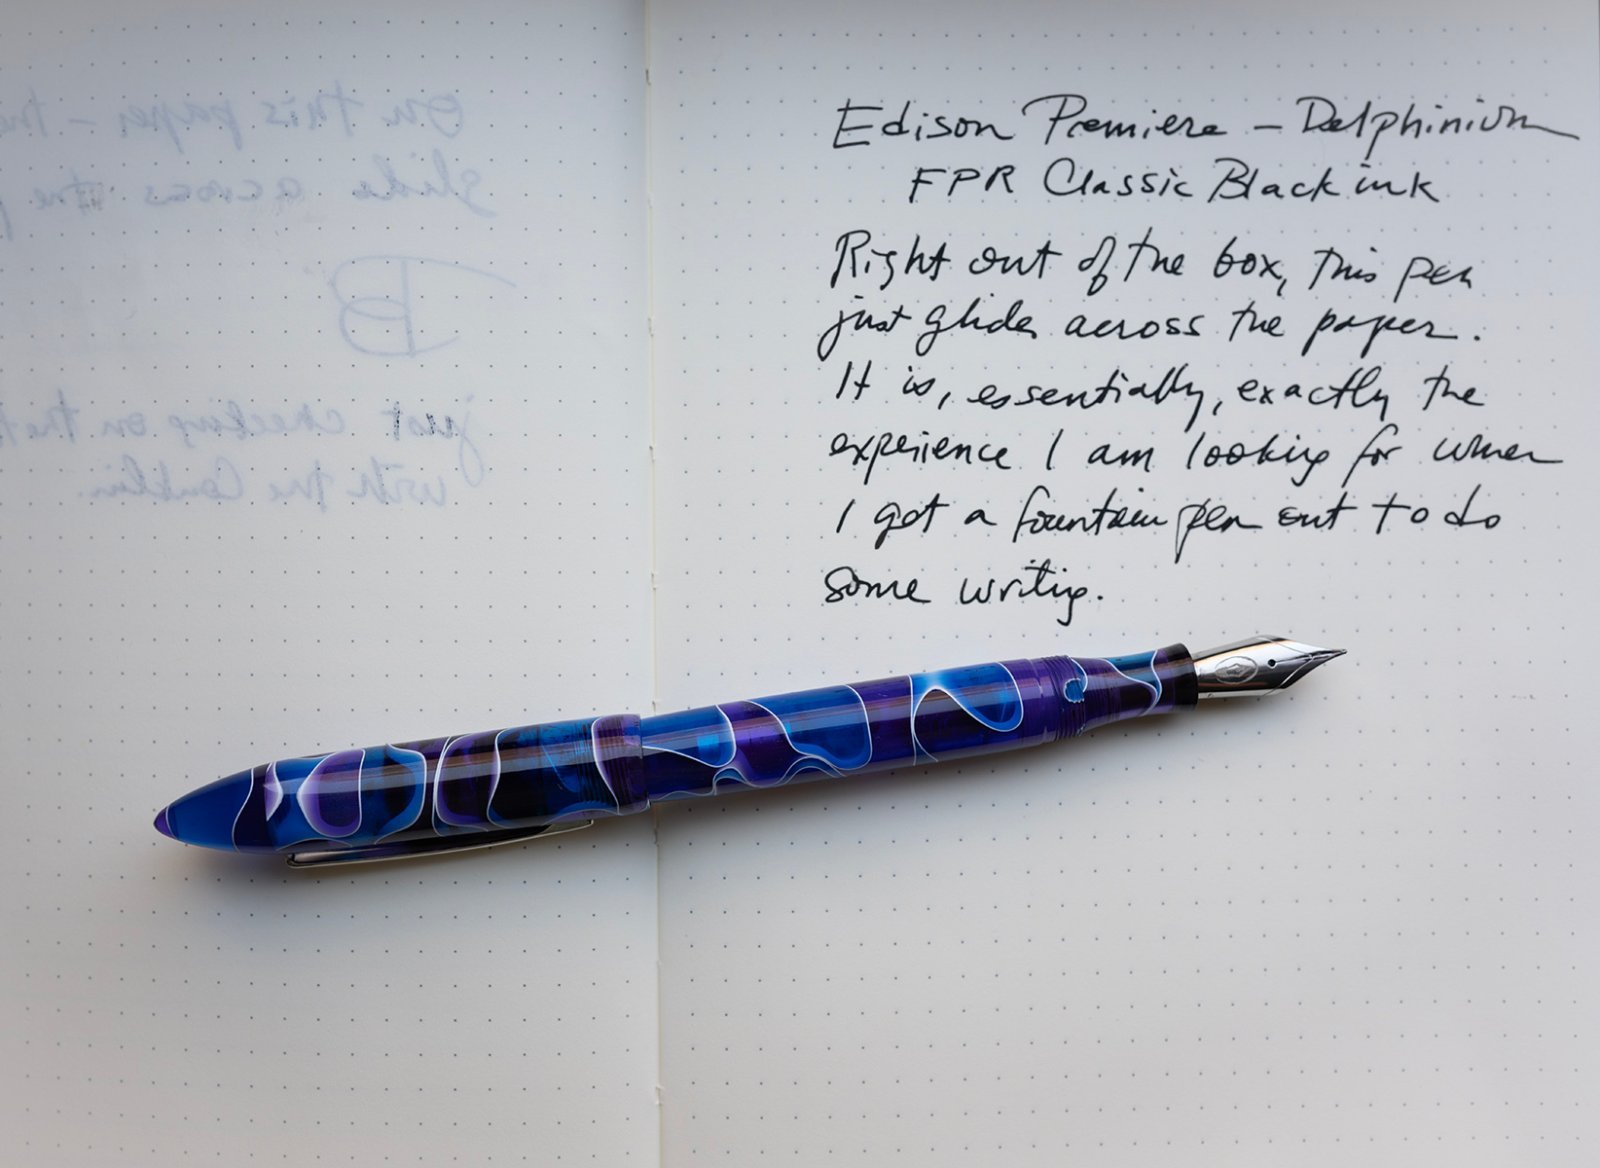 On this paper –
glide across the
B
just checking on
with the Conklin.
Edison Premiere – Delphinium
FPR Classic Black ink
Right out of the box, this pen
just glides across the paper.
It is, essentially, exactly the
experience I am looking for when
I get a fountain pen out to do
some writing.